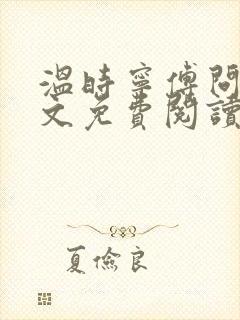 溫時寧傅問
文免費閱讀
夏儉良